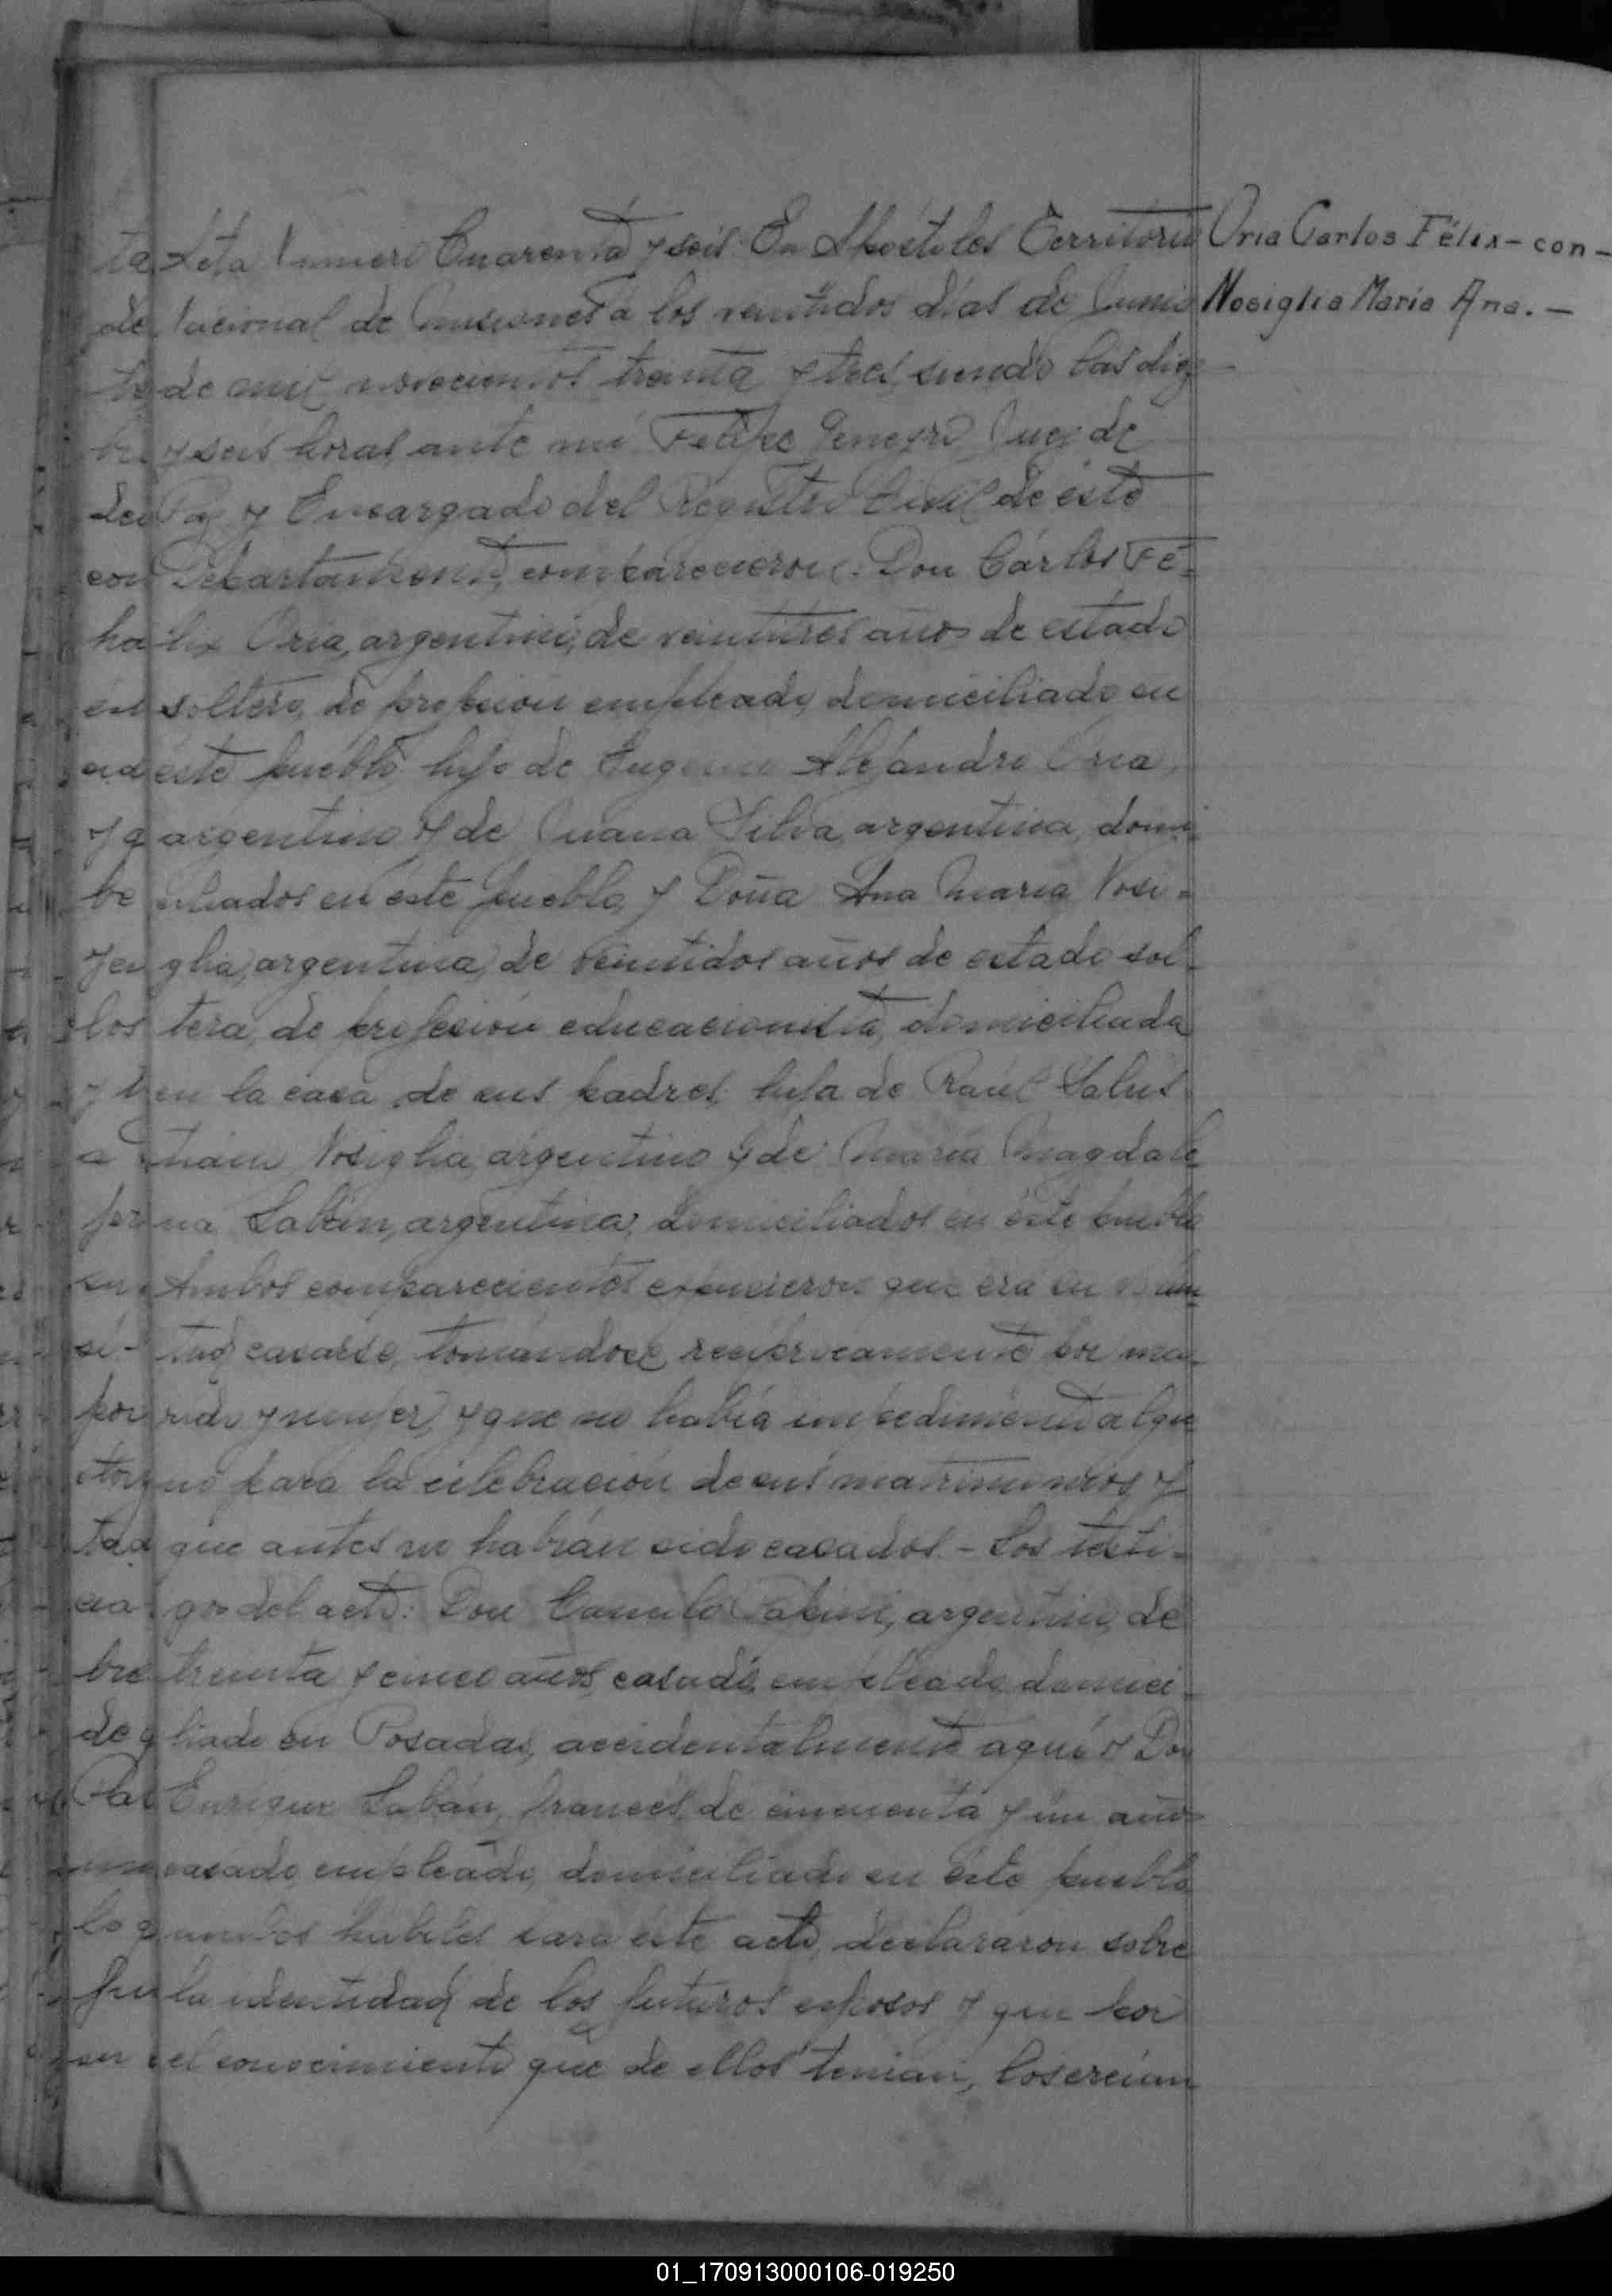 Acta Número Cuarenta y seis. En Apóstoles Territorio
Nacional de Misiones a los veintidos días de Junio
de mil novecientos treinta y tres, siendo las diez
y seis horas, ante mi Felipe Juez de
Paz y Encargado del Registro Civil de este
Departamento, comparecieron: Don Cárlos Fé-
lix Oria, argentino, de veintitres años de estado
soltero, de profesión empleado, domiciliado en
este pueblo, hijo de Eugenio Alejandro Oria,
argentino y de Juana Silva, argentina, domi-
ciliados en este pueblo, y Doña Ana Maria Nosi-
glia, argentina, de veintidos años de estado sol-
tera, de profesión educacionista, domiciliada
en la casa de sus padres, hija de Raúl Salus-
tiano Nosiglia, argentino y de María Magdale-
na Labán, argentina, domiciliados en éste pueblo
Ambos comparecientes expusieron que era su volun-
tad casarse, tomándose recíprocamente por ma-
rido y mujer, y que no había impedimento algu-
no para la celebración de sus matrimonios, y
que antes no habían sido casados. - Los testi-
gos del acto: Don Camilo argentino, de
treinta y cinco años, casado, empleado, domici-
liado en Posadas, accidentalmente aquí y Don
Enrique Labán, francés, de cincuenta y un años
casado, empleado, domiciliado en éste pueblo
ambos hábiles para éste acto, declararon sobre
la identidad de los futuros esposos y que por
el conocimiento que de ellos tenían, los creían
Oria Carlos Félix - con -
Nosiglia María Ana. -
ta
de
con
ha
y a
los
por
de q
01_170913000106-019250